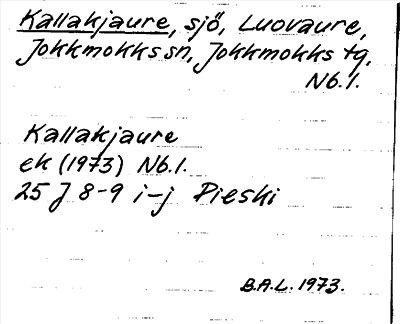 Kallakjaure, sjö, Luovaure,
Jokkmokks sn, Jokkmokks tg,
Nb.l.
Kallakjaure
ek (1973) Nb.l.
25 J 8-9 i-j Pieski
B.A.L. 1973.